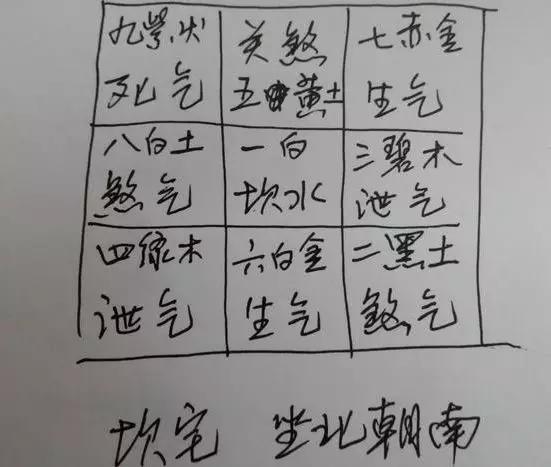 九紫火 关煞 七赤金
死气 五黄土 生气
八白土 一白 三碧木
煞气 坎水 泄气
四绿木 六白金 二黑土
泄气 生气 煞气
坎宅 坐北朝南